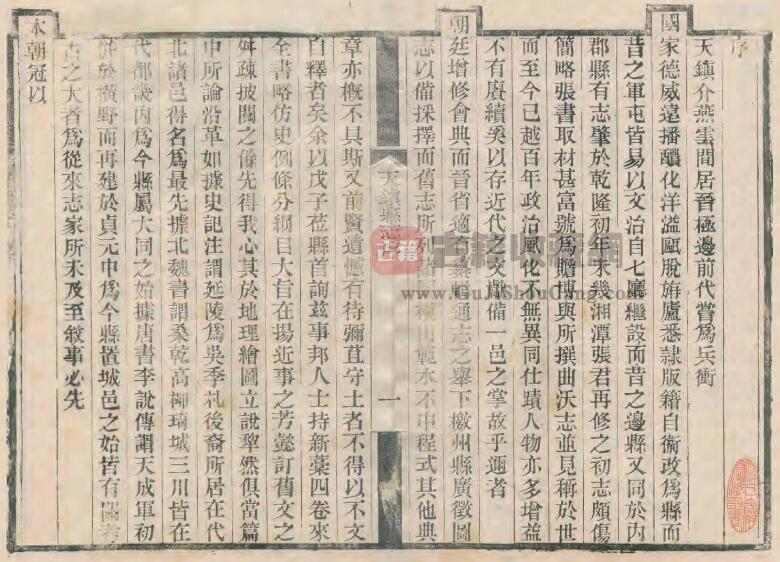 序
天鎮介燕雲間居晉極邊前代嘗為兵衝
國家德威遠播釀化洋溢甌脫旃廬悉隸版籍自衞改為縣而
昔之軍屯皆易以文治自七廳繼設而昔之邊縣又同於內
郡縣有志肇於乾隆初年未幾湘潭張君再修之初志頗傷
簡略張書取材甚富號為贍博與所撰曲沃志並見稱於世
而至今已越百年政治風化不無異同仕蹟人物亦多增益
不有賡續奚以存近代之文獻備一邑之掌故乎邇者
朝廷增修會典而晉省適有纂輯通志之舉下檄州縣廣徵圖
志以備採擇而舊志所列 山範水不中程式其他典
天鎮縣志
一
章亦槪不具斯又前賢遺憾有待彌苴守土者不得以不文
自釋者矣余以戊子莅縣首詢兹事邦人士持新藁四卷來
全書略仿史例條分綱目大旨在揚近事之芳懿訂舊文之
舛疎披閱之餘先得我心其於地理繪圖立說犂然俱當篇
中所論沿革如據史記注謂延陵為吳季札後裔所居在代
北諸邑得名為最先據北魏書謂桑乾高柳琦城三川皆在
代都畿內為今縣屬大同之始據唐書李說傳謂天成軍初
併於橫野而再建於貞元中為今縣置城邑之始皆有關考
古之大者為從來志家所未及至敘事必先
本朝冠以
古籍
古籍收藏網
www.GuJiShouCang.com